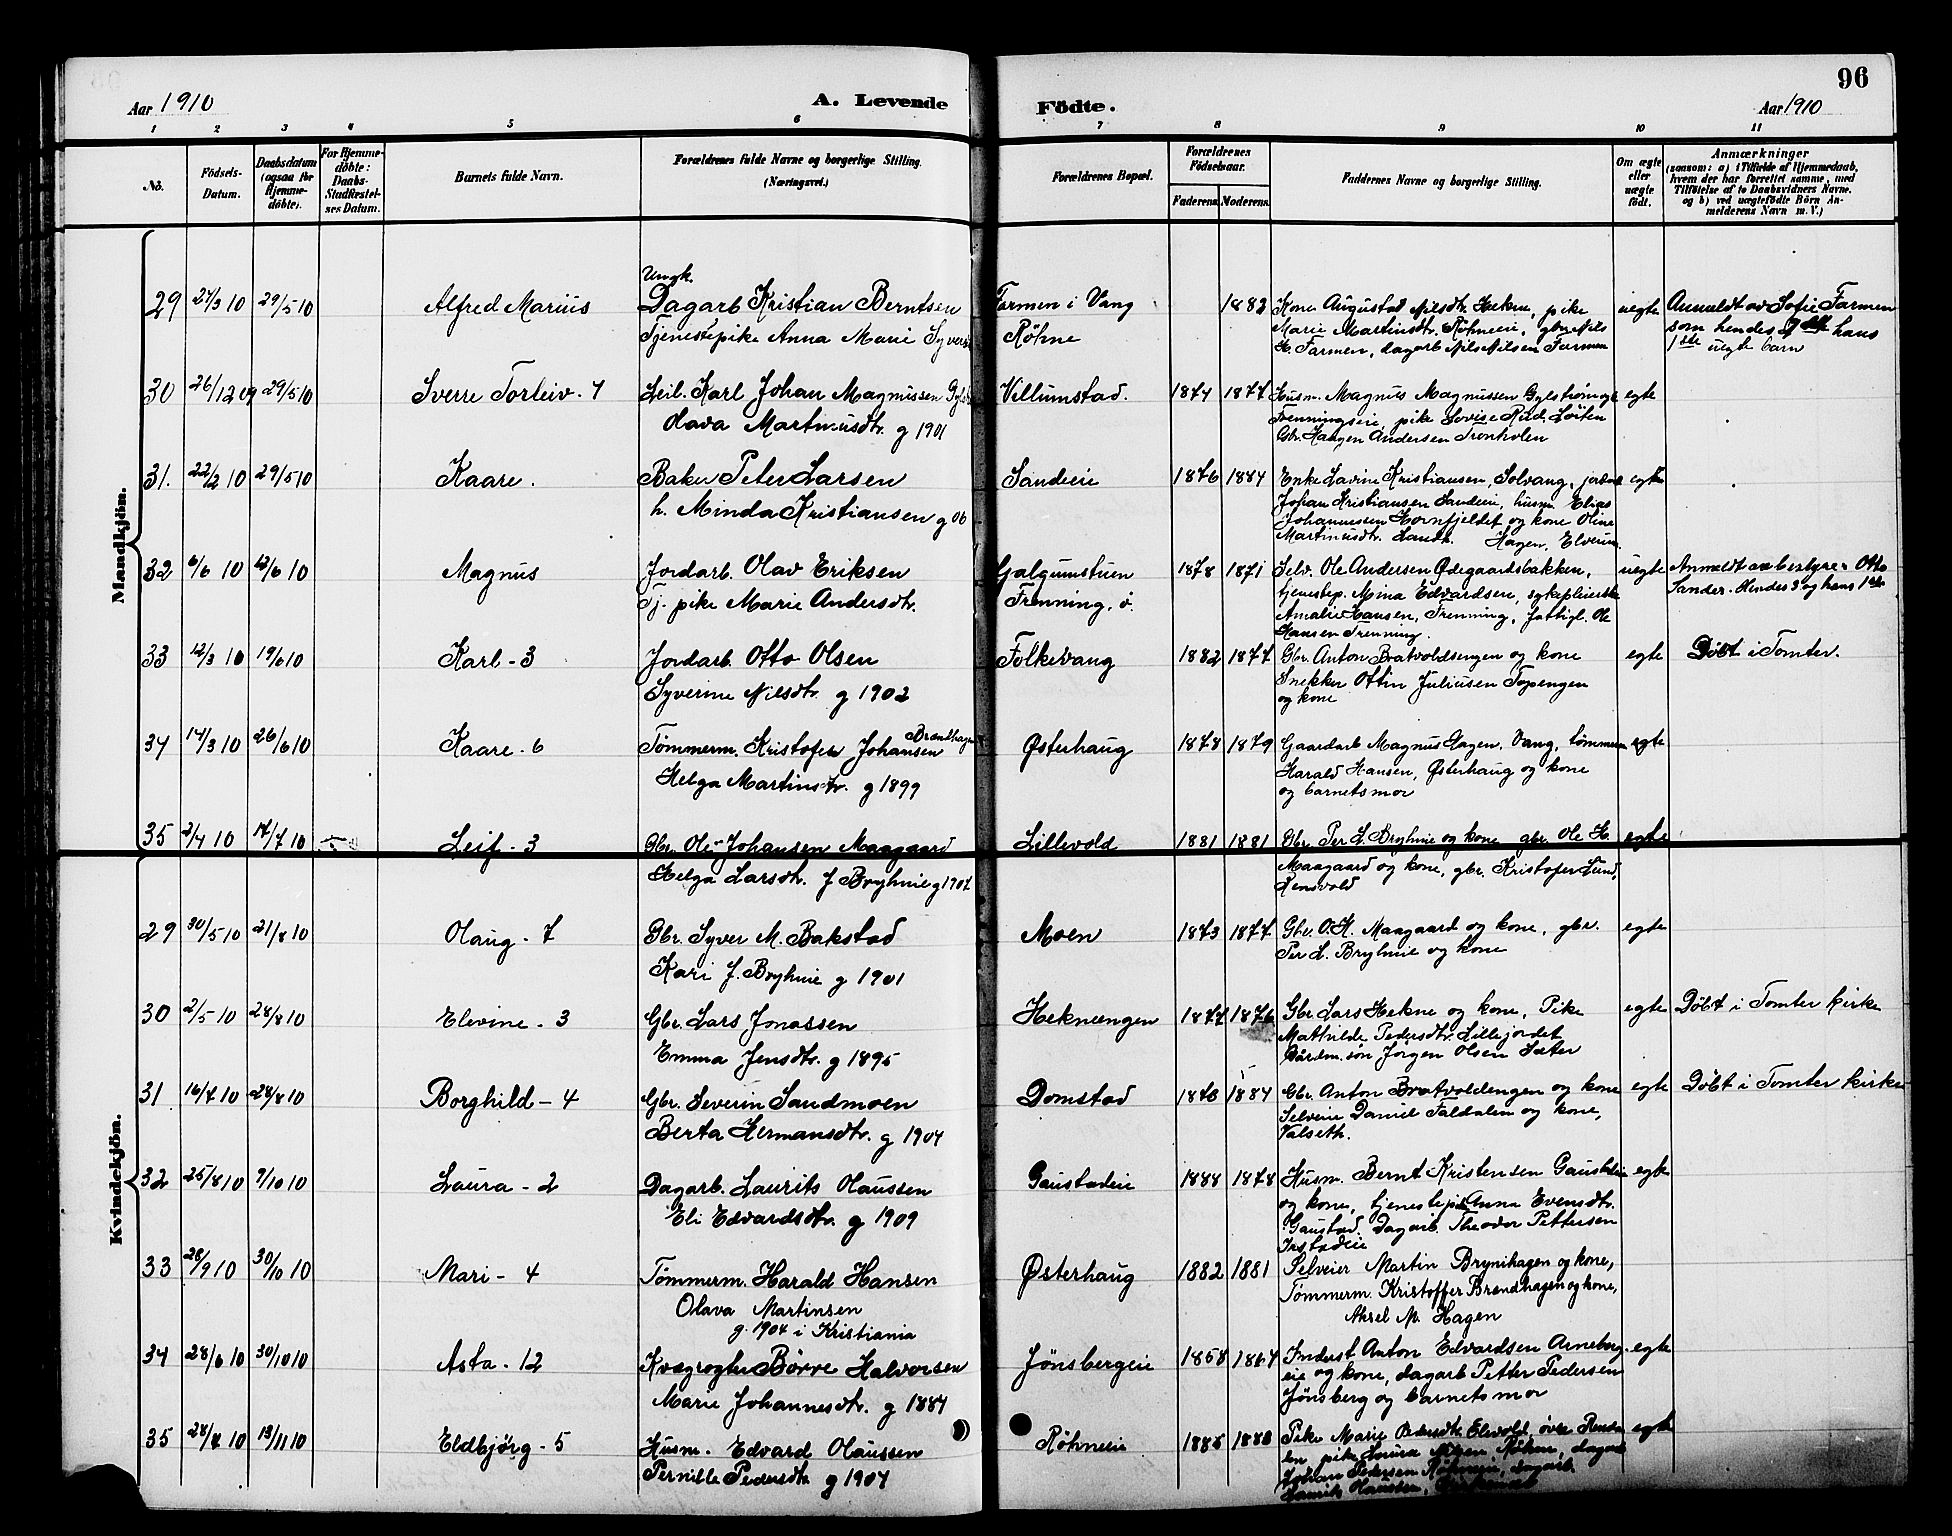 96
Aar 1910 A. Levende Födte. Aar 1910
1 2 3 4 5 6 7 8 9 10 11
No.
Födsels-Datum.
Daabsdatum (ogsaa for Hjemmedöbte).
For Hjemmedöbte: Daabs-Stadfæstelses Datum.
Barnets fulde Navn.
Forældrenes fulde Navne og borgerlige Stilling. (Næringsvei.)
Forældrenes Bopæl.
Forældrenes Födselsaar.
Faderens. Moderens.
Faddernes Navne og borgerlige Stilling.
Om ægte eller uægte födt.
Anmærkninger (saasom: a) i Tilfælde af Hjemmedaab, hvem der har forrettet samme, med Tilföielse af to Daabsvidners Navne. og b) ved uægtefödte Börn Anmelderens Navn m. V.)
Mandkjön.
29 27/3 10 29/5 10 Alfred Marius
Ungk.
Dagarb Kristian Berntsen Farmen i Vang
Tjenestepike Anna Marie Syvers Røhne
1882
Kone Augusta Nilsdtr. Hekne, pike
Marie Martinsdtr. Röhneeie, gbr Nils
H. Farmen, dagarb Nils Nilsen Farmen
uegte
Anmeldt av Sofie Farmen
som hendes 2det hans
1ste uegte barn
30 26/12 09 29/5 10 Sverre Torleiv - 7
Leil. Karl Johan Magnussen
Olava Martinusdtr. g 1901
Villumstad. 1874 1877
Husm. Magnus Magnussen
Frenningseie, pike Lovise Rud, Löiten
Gbr. Haagen Andersen Tronholen
egte
31. 22/2 10 29/5 10 Kaare.
Baker Peter Larsen
h. Minda Kristiansen g 06
Sandeeie 1876 1884
Enke Lavine Kristiansen, Solvang, jordarb
Johan Kristiansen Sandeie, husm Elias
Johannessen Hornfjeldet og kone Oline
Martinusdtr. Hagen, Elverum.
egte
32 6/6 10 12/6 10 Magnus
Jordarb. Olav Eriksen
Tj. pike Marie Andersdtr.
Galgumstuen
Frenning, ö.
1878 1871
Selv. Ole Andersen Ødegaardsbakken,
tjenestep. Mina Edvardsen, sykepleierske
Amalie Hansen, Frenning, fattigl. Ole
Hansen Frenning.
uegte
Anmeldt av bestyrer Otto
Sander. Hendes 3 og hans 1ste
33 12/3 10 19/6 10 Karl - 3
Jordarb. Otto Olsen
Syverine Nilsdtr. g 1902
Folkevang 1882 1877
Gbr. Anton Bratvoldsengen og kone
Snekker Ottin Juliusen Topengen
og kone
egte Döbt i Tomter.
34 14/3 10 26/6 10 Kaare - 6
Tømmerm. Kristofer Johansen Brændhagen
Helga Martinsdtr. g 1899
Østerhaug 1878 1879
Gaardarb Magnus Hagen, Vang, tømmerm
Harald Hansen, Østerhaug og kone
og barnets mor
egte
35 2/4 10 17/7 10 Leif - 3
Gbr. Ole Johansen Maagaard
Helga Larsdtr. f Bryhnie g 1907
Lillevold 1881 1881
Gbr. Per L. Bryhnie og kone gbr. Ole H.
Maagaard og kone, gbr. Kristofer Lund,
egte
Kvindekjön.
29 30/5 10 21/8 10 Olaug - 7
Gbr. Syver M. Bakstad
Kari f. Bryhnie g 1901
Moen 1873 1877
Gbr. O.H. Maagaard og kone, gbr.
Per L. Bryhnie og kone
egte
30 2/5 10 28/8 10 Elevine - 3
Gbr. Lars Jonassen
Emma Jensdtr. g 1895
Hekneengen 1877 1876
Gbr Lars Hekne og kone, Pike
Mathilde Pedersdtr. Lillejordet
Gårdm. sön Jörgen Olsen Sæter
egte Döbt i Tomter kirke
31 16/7 10 28/8 10 Borghild - 4
Gbr. Severin Sandmoen
Berta Hermansdtr. g 1904
Domstad 1873 1884
Gbr. Anton Bratvoldengen og kone
Selveier Daniel Faldalen og kone,
Valseth.
egte Döbt i Tomter kirke
32 25/8 10 9/10 10 Laura - 2
Dagarb. Laurits Olaussen
Eli Edvardsdtr. g 1909
Gaustadeie 1888 1878
Husm. Bernt Kristensen Gaustadeie
og kone, tjenestepike Anna Evensdtr.
Gaustad. Dagarb. Theodor Pettersen
Irstadeie
egte
33 28/9 10 30/10 10 Mari - 4
Tømmerm. Harald Hansen
Olava Martinsen
g. 1904 i Kristiania
Østerhaug 1882 1881
Selveier Martin Brynihagen og kone,
Tømmerm. Kristoffer Brændhagen og kone,
Aksel M. Hagen
34 28/6 10 30/10 10 Asta - 12
Kvægrøgter Børre Halvorsen
Marie Johannesdtr. g 1884
Jønsbergeie 1858 1864
Inderst Anton Edvardsen Arneberg
eie og kone, dagarb Petter Pedersen
Jønsberg og barnets mor
egte
35 28/7 10 13/11 10 Eldbjörg - 5
Husm. Edvard Olaussen
Pernille Pedersdtr g 1907
Røhneeie 1885 1888
Pike Marie Pedersdtr. Elvold, övre Rendalen
pike Laura Olsen Röhne, dagarb
Johan Pedersen Röhneeie, dagarb.
Laurits Olaussen,
egte